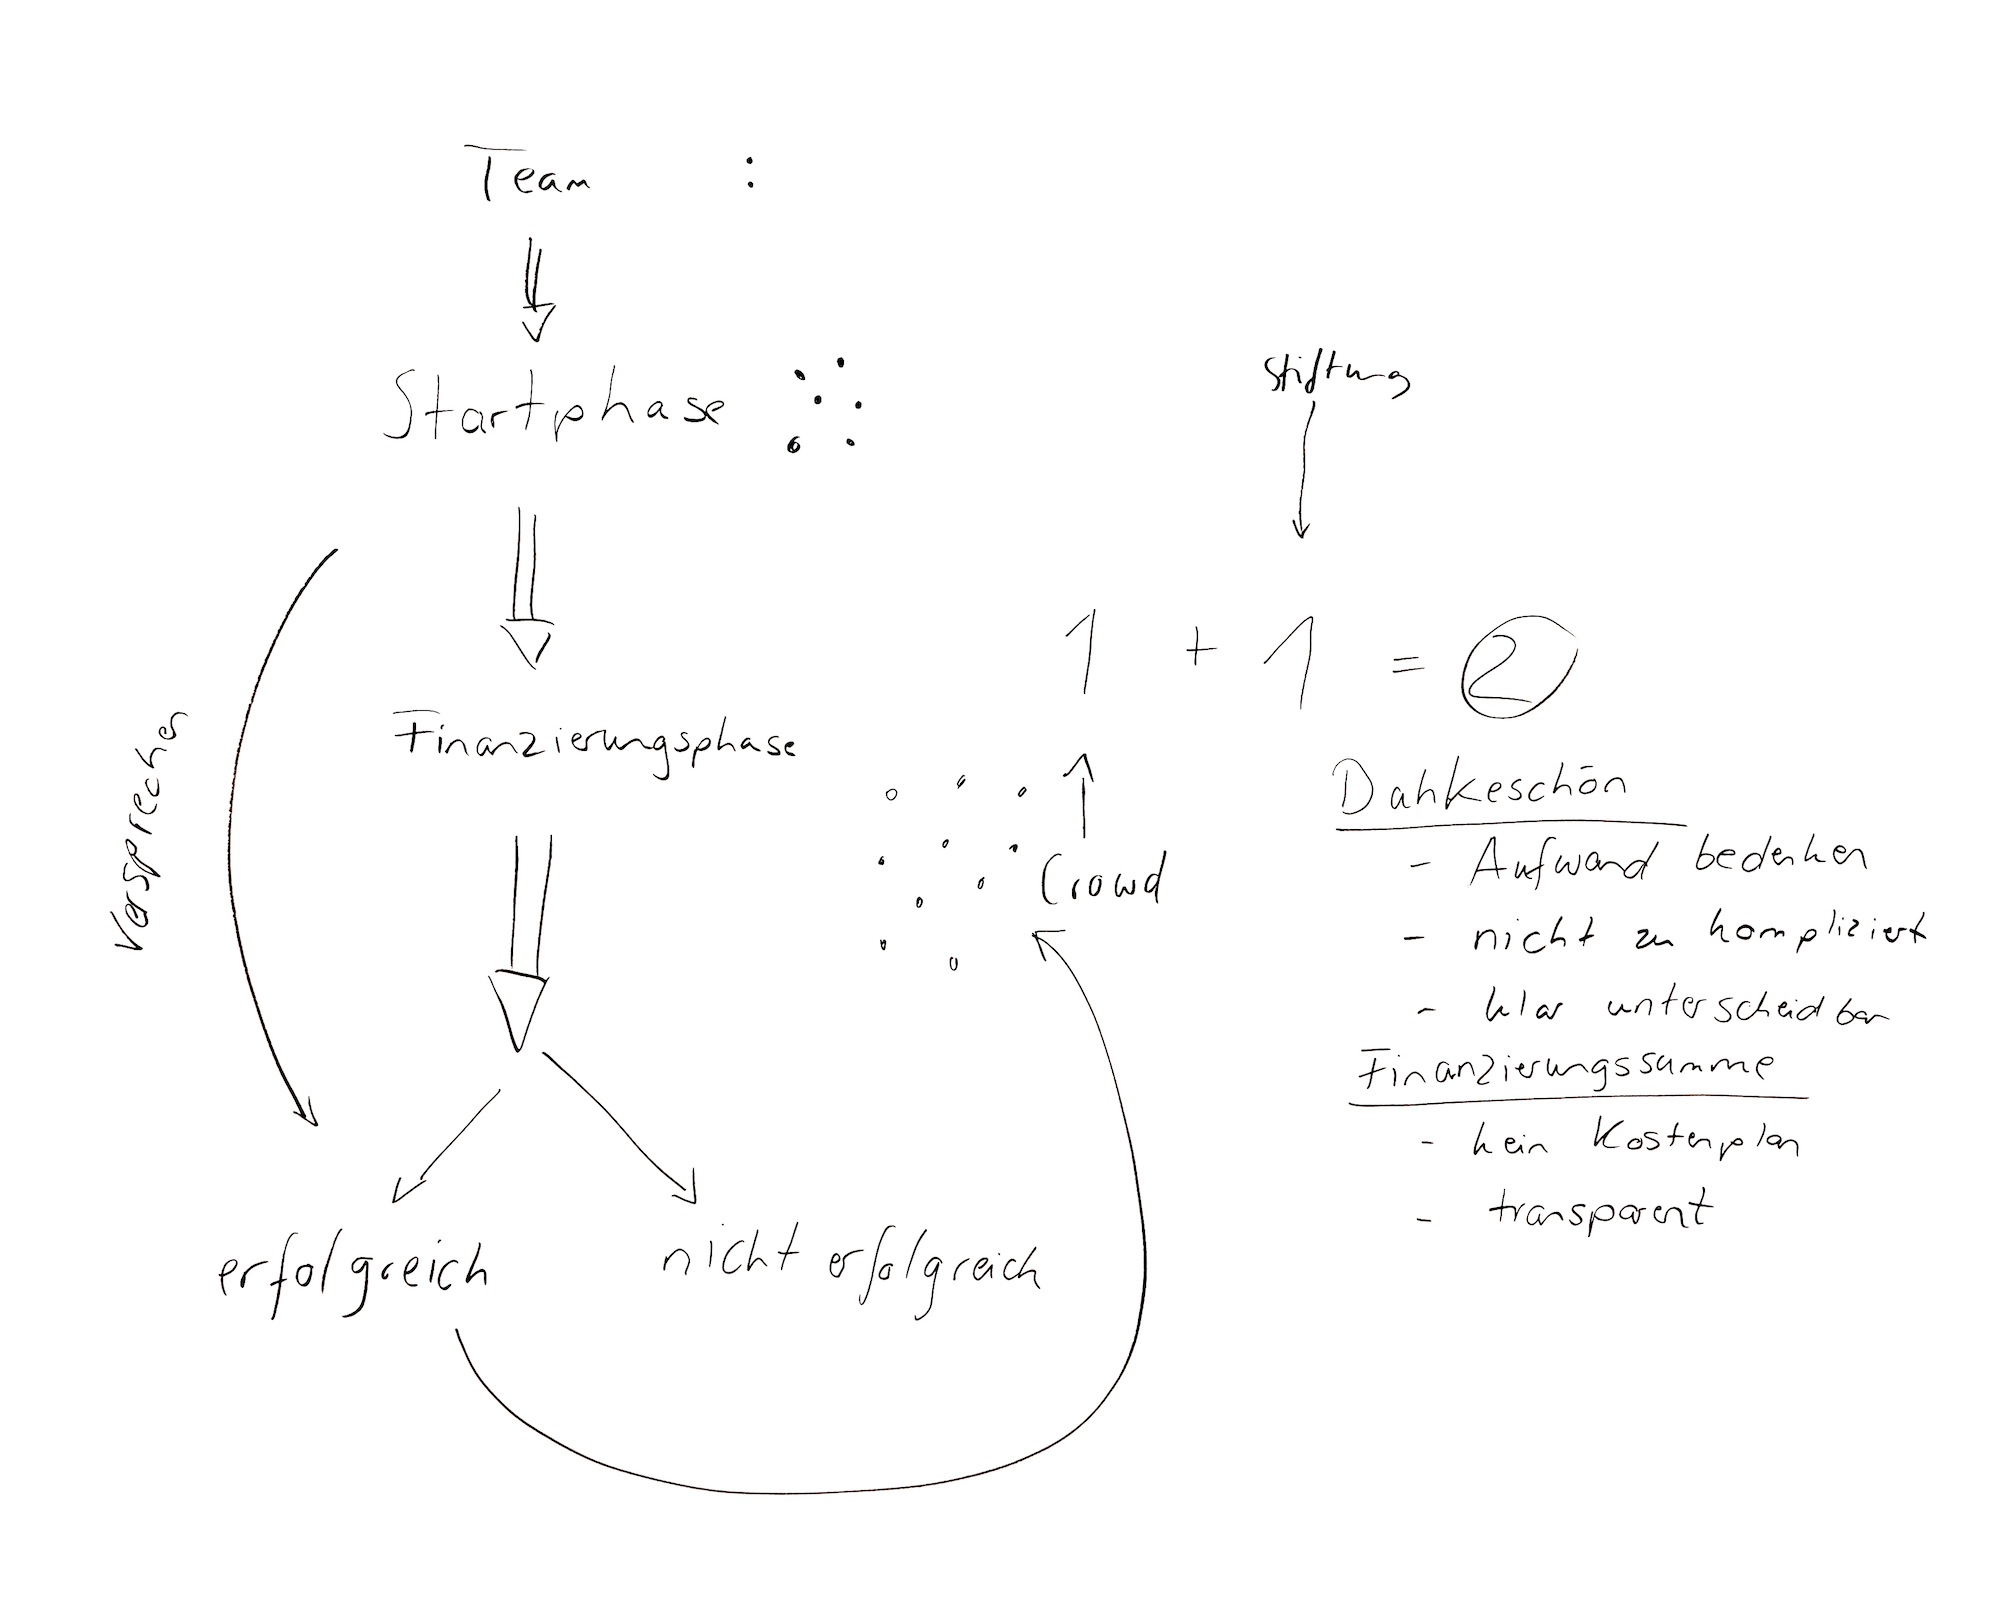 Team :
Startphase
Stiftung
Versprechen
1 + 1 = 2
Finanzierungsphase
Crowd
Dankeschön
- Aufwand bedenken
- nicht zu kompliziert
- klar unterscheidbar
Finanzierungssumme
- kein Kostenplan
- transparent
erfolgreich
nicht erfolgreich